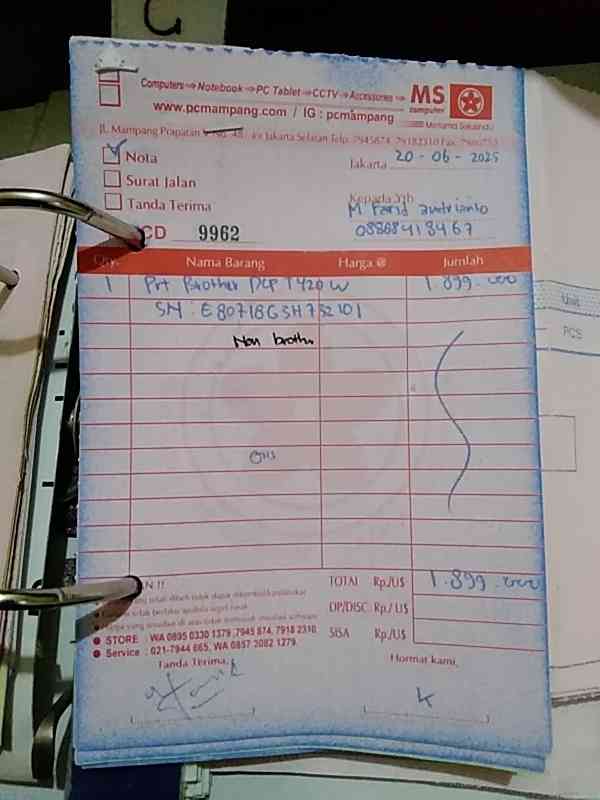 Computers Notebook PC Tablet CCTV Accessories MS
computer
www.pcmampang.com / IG : pcmampang
Mintama Sekasindu
Jl. Mampang Prapatan Jakarta Selatan Telp. 7945874, 79182310 Fax.
Nota
Jakarta 20 - 06 - 2025
Surat Jalan
Tanda Terima
Kepada Yth
M Farid
088689418467
CD 9962
Qty. Nama Barang Harga @ Jumlah
1 Prt Brother DCP T420W 1.899.000
SN : E80718G3H732101
Non brother
TOTAL Rp./U$ 1.899.000
DP/DISC. Rp./ U$
SISA Rp./U$
STORE WA 0895 0330 1379 ,7945 874, 7918 2310
Service : 021-7944 665, WA 0857 2082 1279
Tanda Terima, Hormat kami,
Unit
PCS